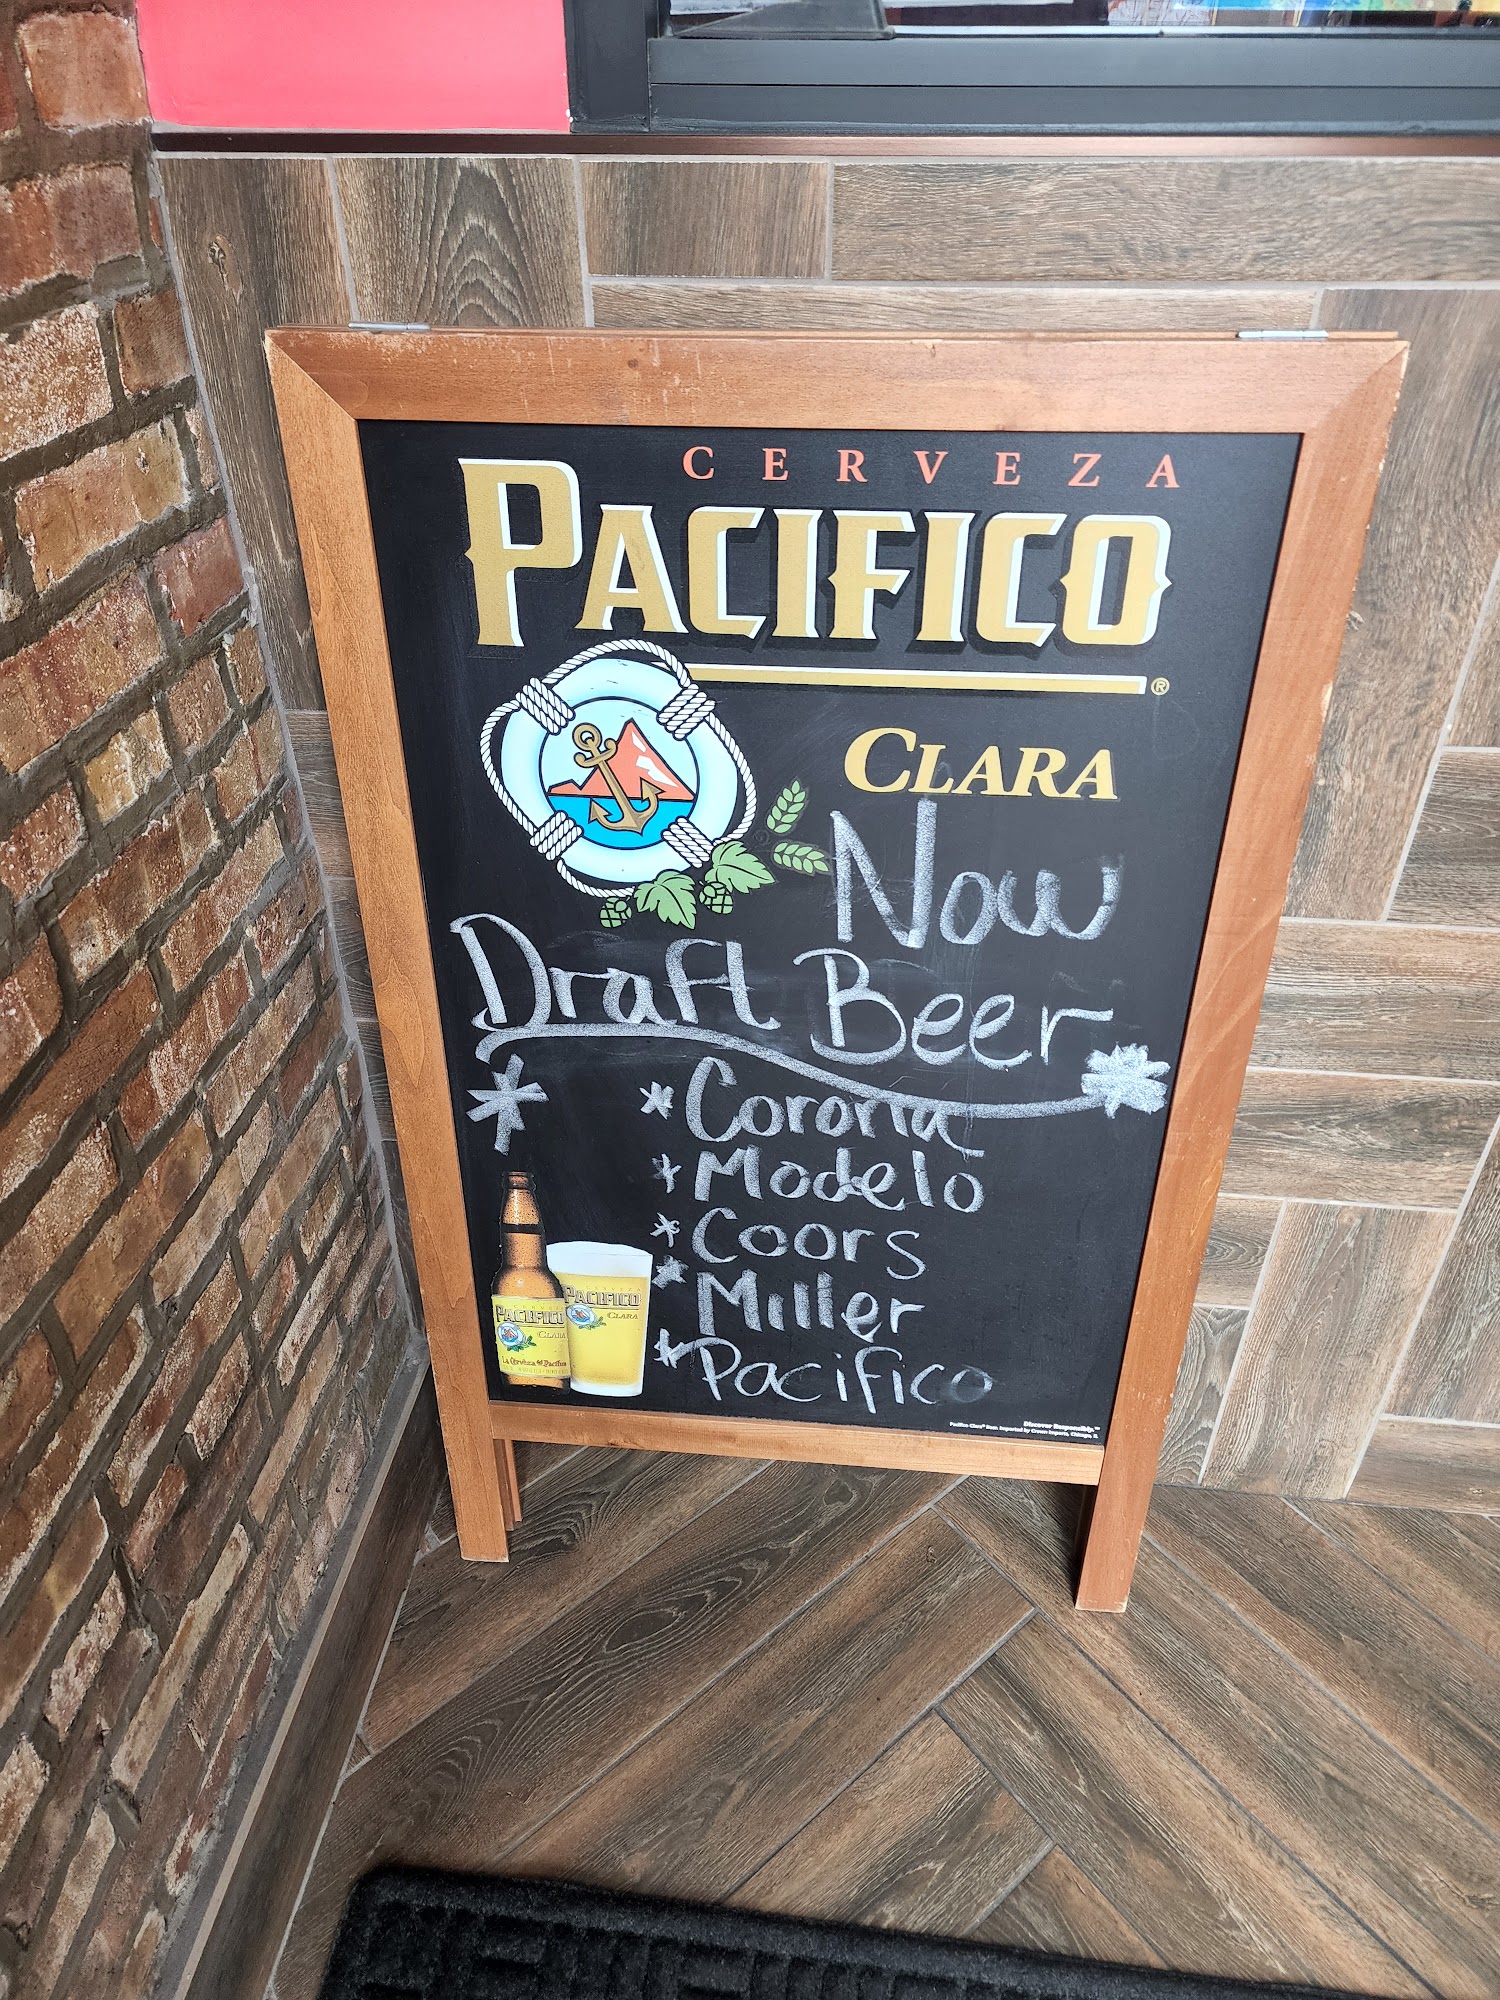 CERVEZA
PACIFICO
®
CLARA
Now
Draft Beer
* Corona
* Modelo
* Coors
* Miller
* Pacifico
CERVEZA
PACIFICO
CLARA
PACIFICO
CLARA
La Cerveza del Pacífico
Discover Responsibly.™
Pacifico Clara® Beer. Imported by Crown Imports, Chicago, IL